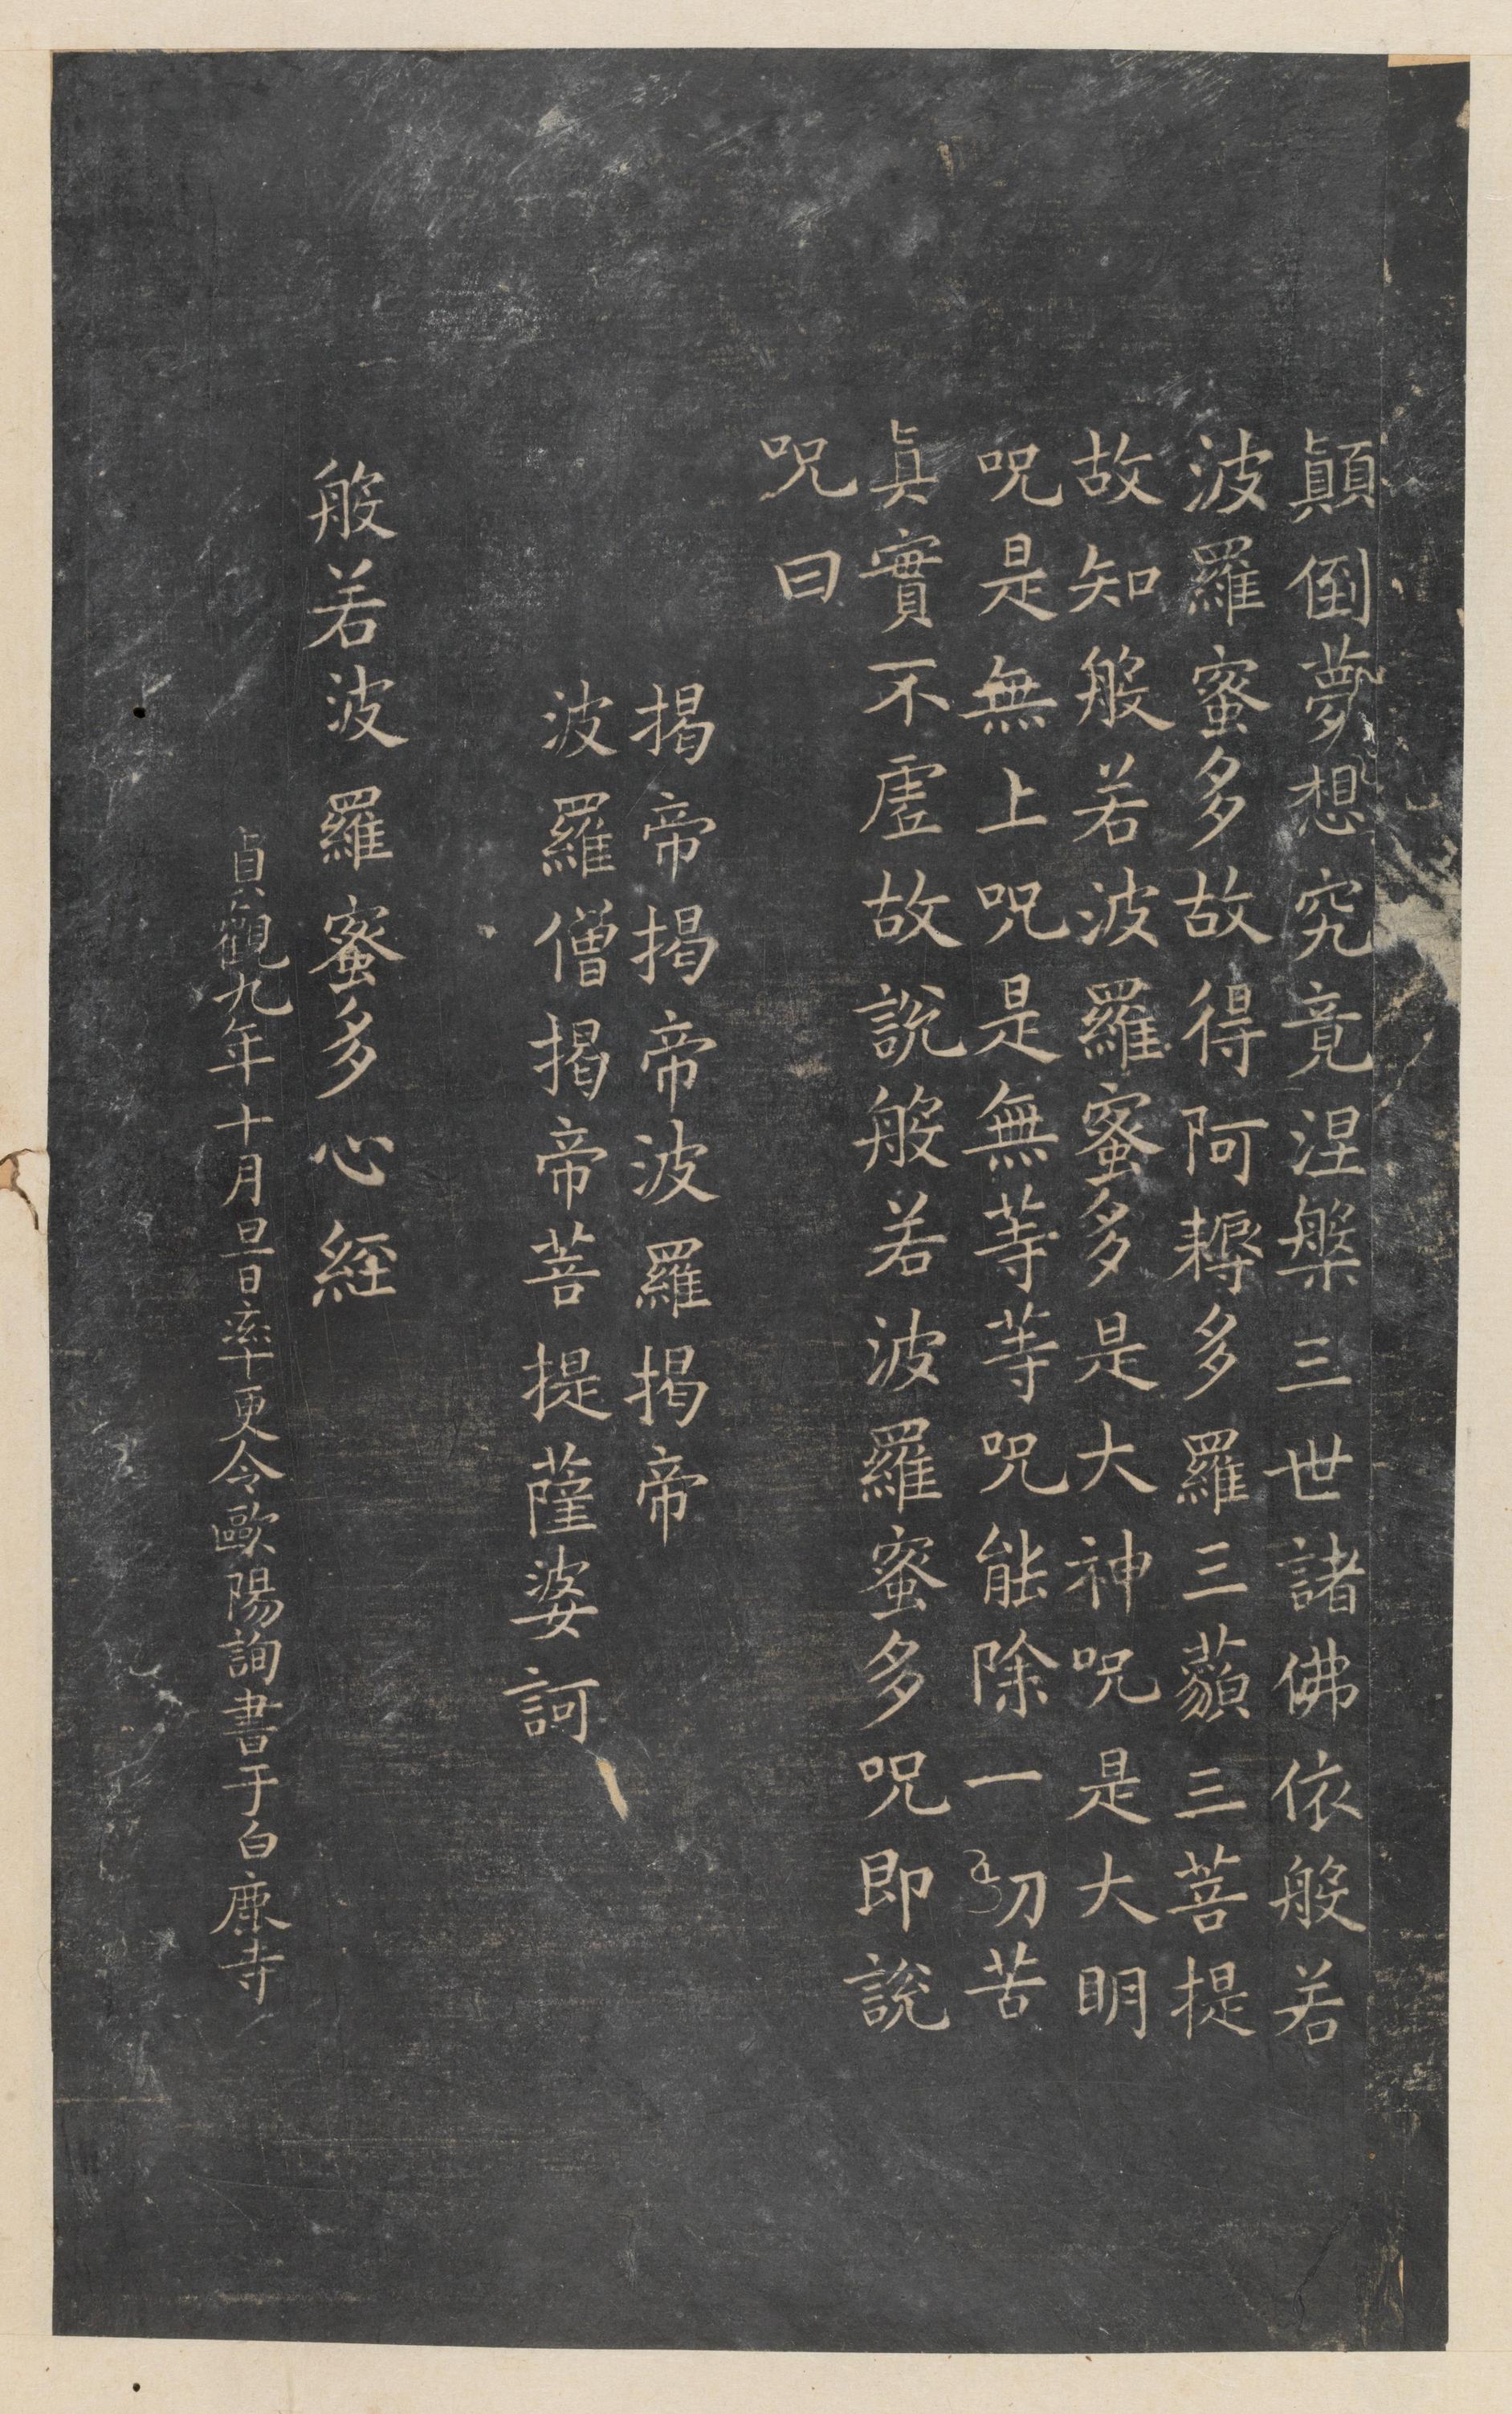 顛倒夢想究竟涅槃三世諸佛依般若
波羅蜜多故得阿耨多羅三藐三菩提
故知般若波羅蜜多是大神呪是大明
呪是無上呪是無等等呪能除一切苦
真實不虛故說般若波羅蜜多呪即說
呪曰
揭帝揭帝波羅揭帝
波羅僧揭帝菩提薩婆訶
般若波羅蜜多心經
貞觀九年十月旦日率更令歐陽詢書于白鹿寺